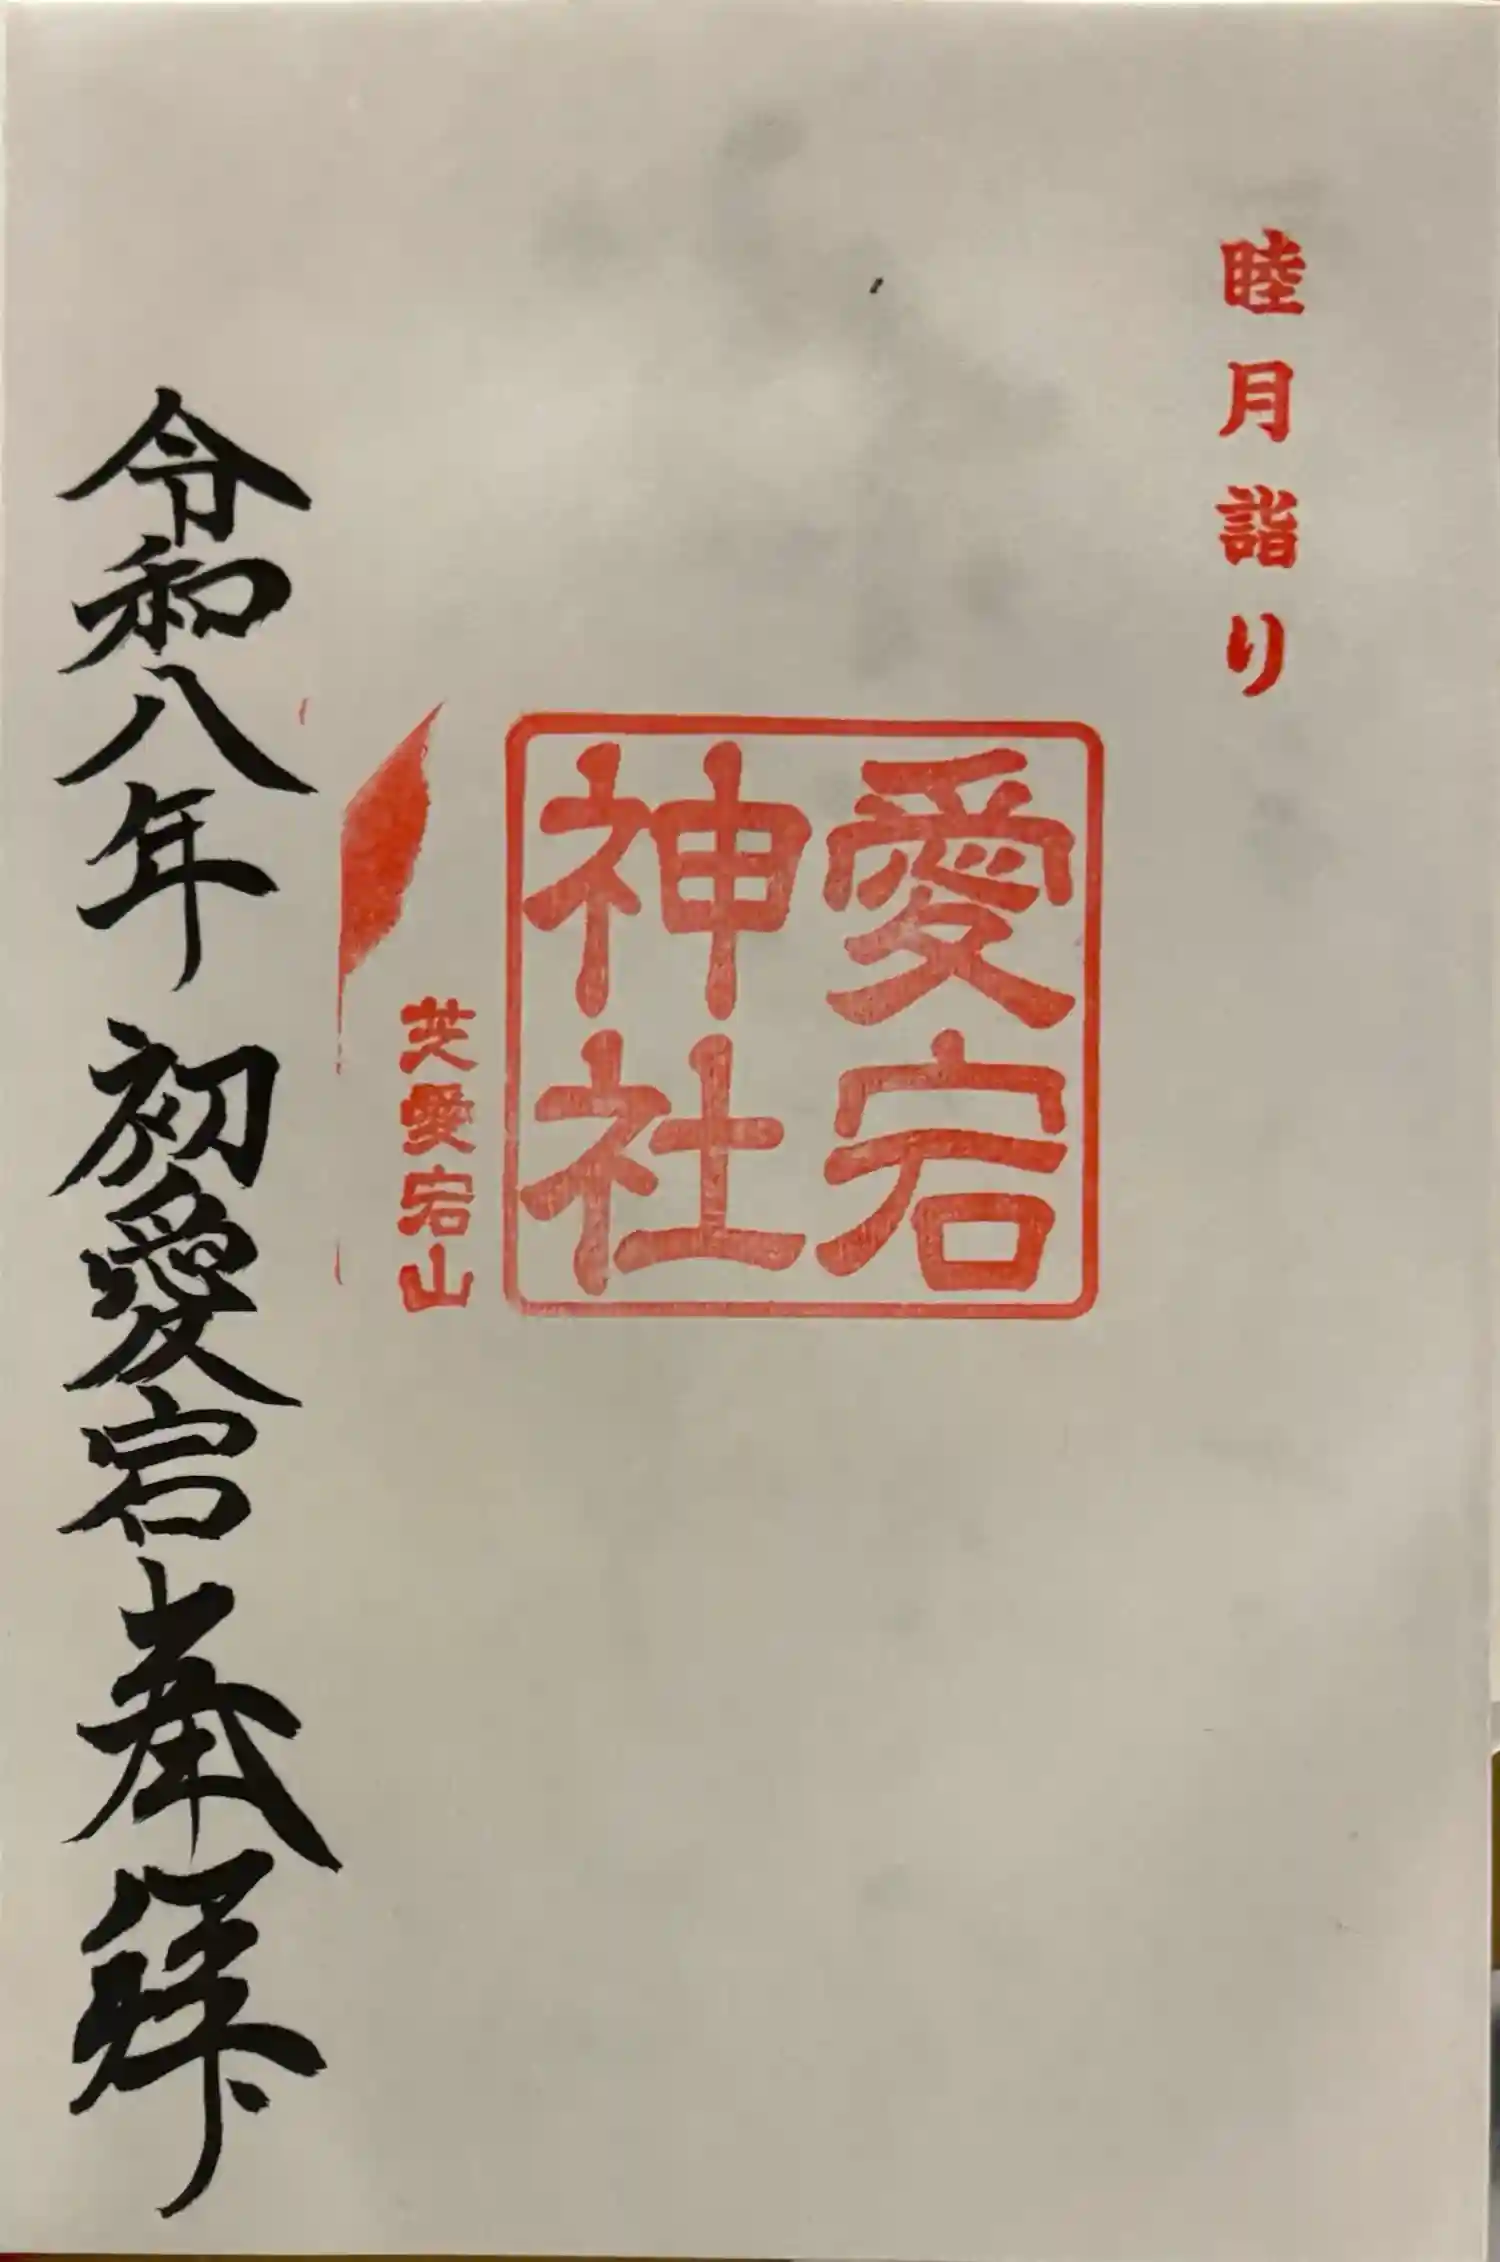 睦月詣り
愛宕
神社
芝愛宕山
令和八年 初愛宕 奉拝